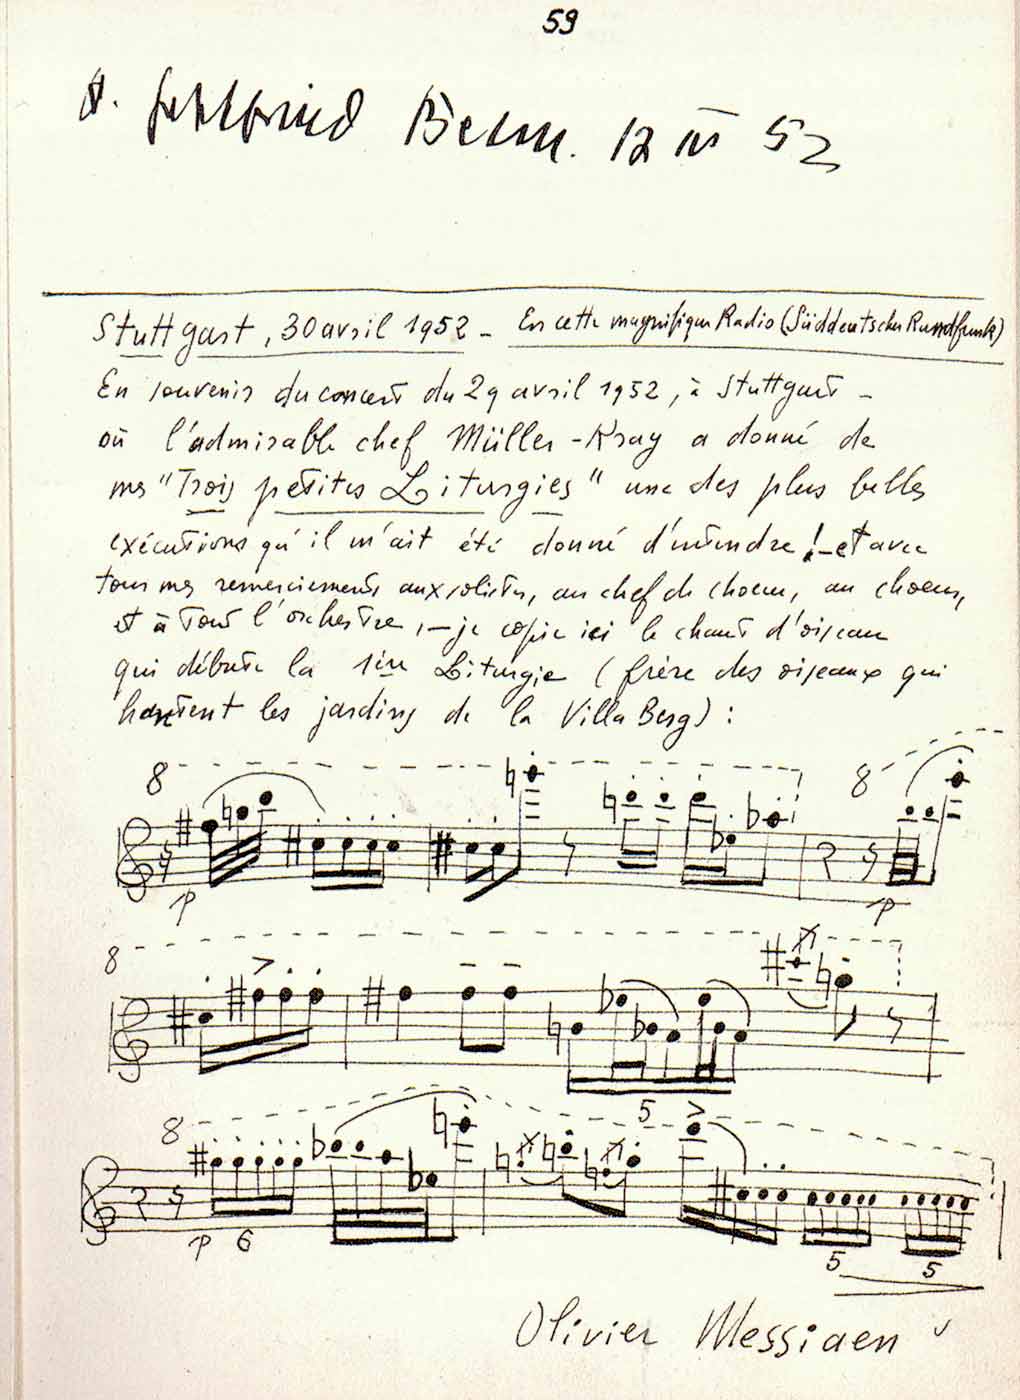 59
Gottfried Benn. 12 III 52
Stuttgart, 30 avril 1952 - En cette magnifique Radio (Süddeutscher Rundfunk)
En souvenir du concert du 29 avril 1952, à Stuttgart -
où l'admirable chef Müller-Kray a donné de
mes "Trois petites Liturgies" une des plus belles
exécutions qu'il m'ait été donné d'entendre! - et avec
tous mes remerciements aux solistes, au chef de choeur, au choeur,
et à tout l'orchestre, - je copie ici le chant d'oiseau
qui débute la 1ère Liturgie (frère des oiseaux qui
hantent les jardins de la Villa Berg) :
8 8
p p
8
8 5
p 6 5 5
Olivier Messiaen